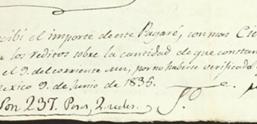 cibí el importe de este Pagaré, con mas Cie
los reditos sobre la cantidad de que constan
el 9. del corriente mes, por no haberse verificado
exico 9. de Junio de 1835.
Son 237. Pesos, 2 reales.